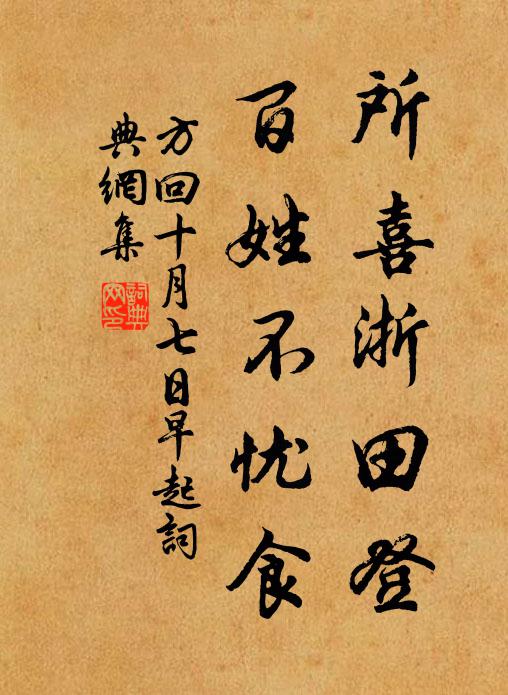 所喜浙田登
百姓不忧食
方回十月七日早起詞
典網集
詞典网印